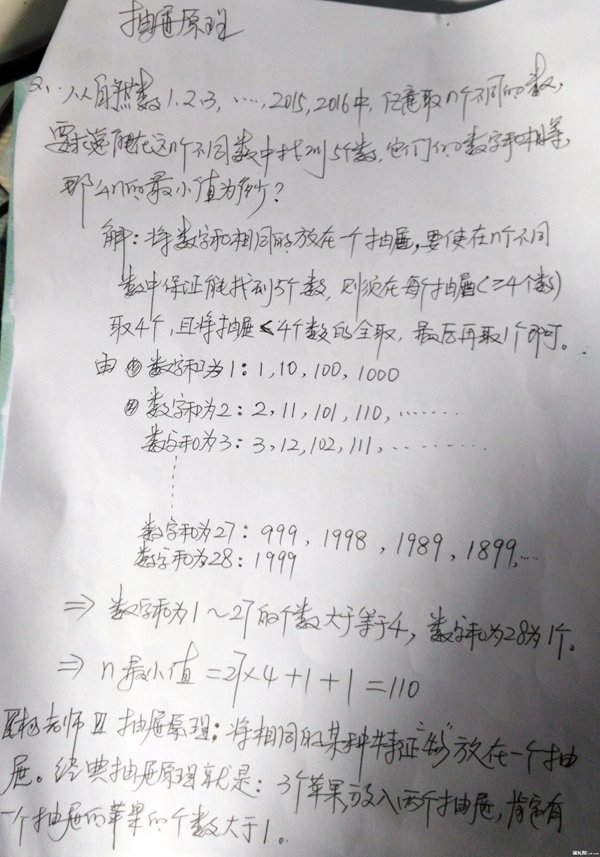 抽屉原理
2、从自然数1、2、3、……,2015,2016中,任意取n个不同的数,
要求总能在这n个不同数中找到5个数,它们的数字和相等,
那么n的最小值为多少?
解:将数字和相同的放在一个抽屉,要使在n个不同
数中保证能找到5个数,则须在每个抽屉(≥4个数)
取4个,且将抽屉≤4个数的全取,最后再取1个即可。
由①数字和为1:1,10,100,1000
②数字和为2:2,11,101,110,……
数字和为3:3,12,102,111,………
数字和为27:999,1998,1989,1899,…
数字和为28:1999
⇒ 数字和为1~27的个数大于等于4,数字和为28为1个。
⇒ n最小值=27×4+1+1=110
老师 抽屉原理:将相同的某种特征"的"放在一个抽
屉。经典抽屉原理就是:3个苹果,放入两个抽屉,肯定有
一个抽屉的苹果的个数大于1。